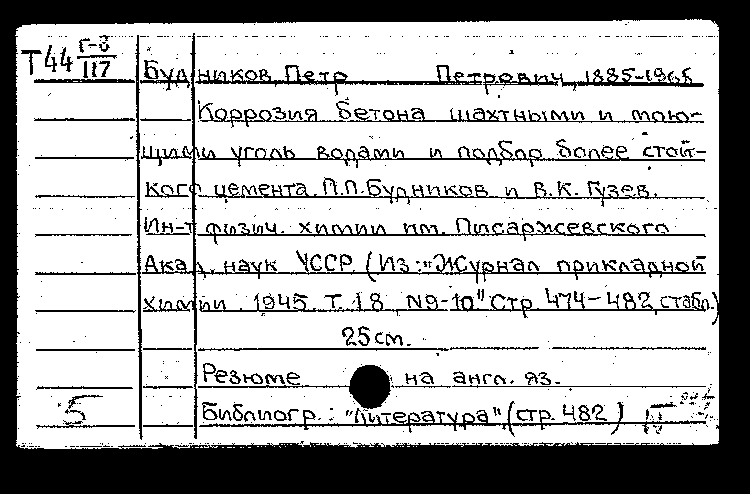 Т44 Г-8/117
Будников, Петр Петрович, 1885-1968
Коррозия бетона шахтными и мою-
щими уголь водами и подбор более стой-
кого цемента. П.П.Будников и В.К. Гузев.
Ин-т физич. химии им. Писаржевского
Акад. наук УССР. (Из: "Журнал прикладной
химии. 1945. Т. 18, N9-10" Стр. 474-482, с табл.)
25 см.
Резюме на англ. яз.
5 Библиогр.: "Литература", (стр. 482)